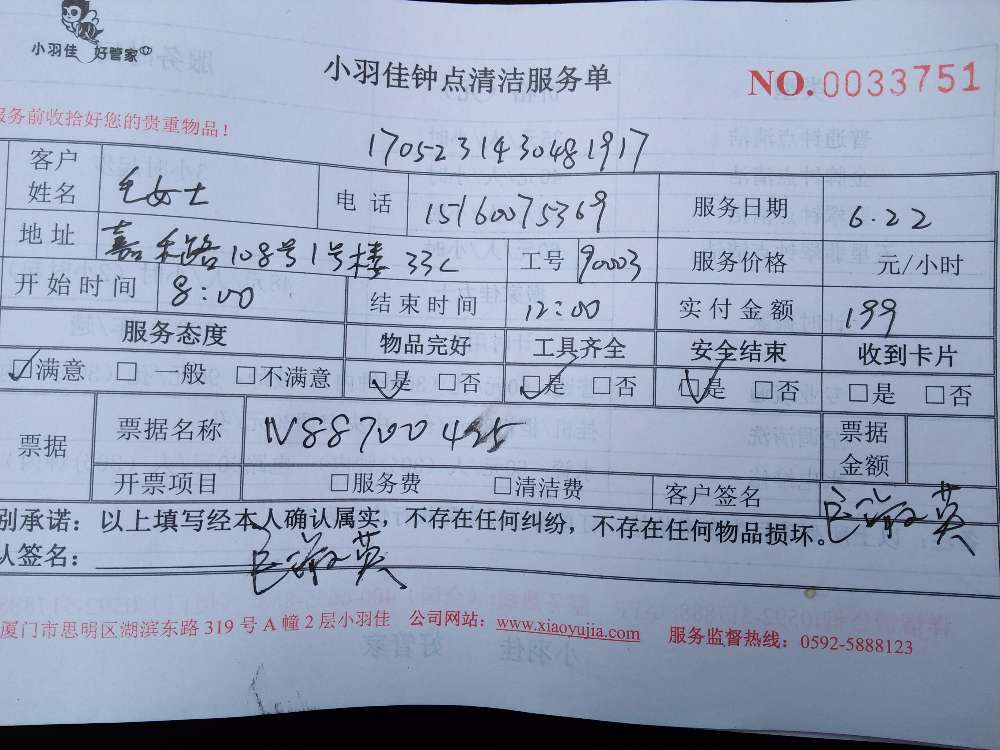 小羽佳 好管家
小羽佳钟点清洁服务单
NO.0033751
服务前收拾好您的贵重物品!
1705231430481917
客户姓名 毛女士 电话 15160075369 服务日期 6.22
地址 嘉禾路108号1号楼33C 工号 90003 服务价格 元/小时
开始时间 8:00 结束时间 12:00 实付金额 199
服务态度 物品完好 工具齐全 安全结束 收到卡片
☑满意 □一般 □不满意 ☑是 □否 ☑是 □否 ☑是 □否 □是 □否
票据 票据名称 票据金额
开票项目 □服务费 □清洁费 客户签名
别承诺：以上填写经本人确认属实，不存在任何纠纷，不存在任何物品损坏。
认签名：
厦门市思明区湖滨东路319号A幢2层小羽佳 公司网站：www.xiaoyujia.com 服务监督热线：0592-5888123